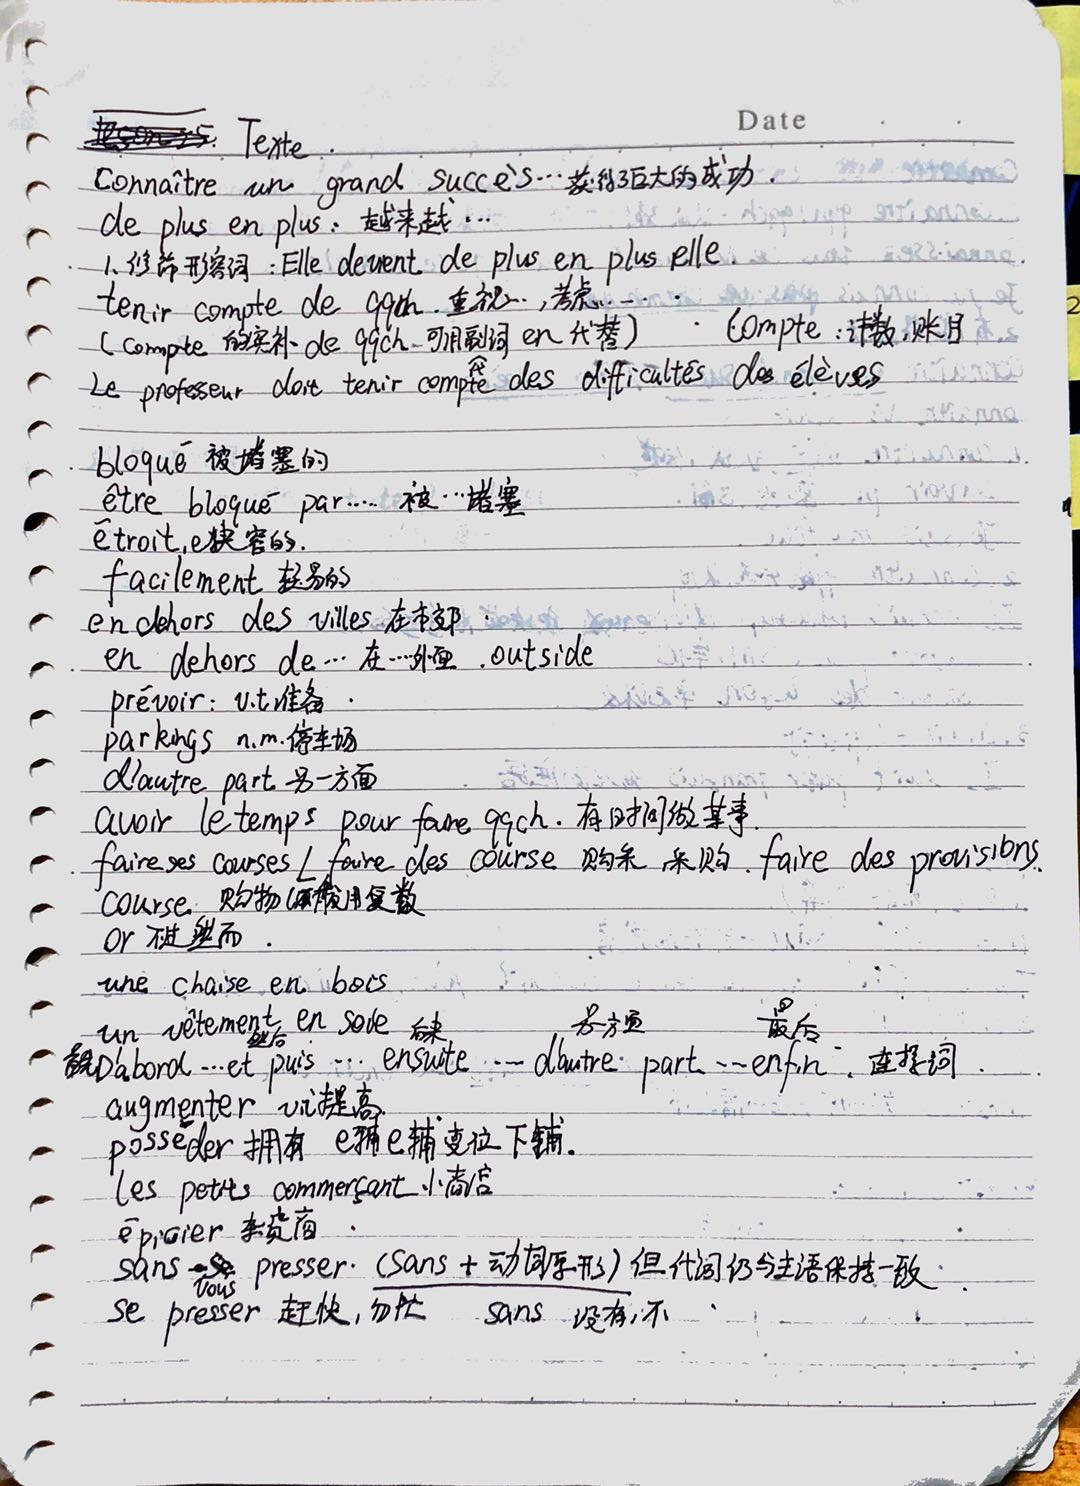 Date
Texte.
Connaître un grand succès… 获得了巨大的成功.
de plus en plus: 越来越…
1. 修饰形容词: Elle devent de plus en plus elle.
tenir compte de qqch. 重视…, 考虑…
(compte 的宾补 de qqch 可用副词 en 代替) Compte: 计数, 账月
Le professeur doit tenir compte des difficultés des élèves
bloqué 被堵塞的
être bloqué par…… 被…堵塞
étroit, e 狭窄的.
facilement 轻易的
en dehors des villes 在市郊.
en dehors de… 在…外面. outside
prévoir: v.t. 准备.
parkings n.m. 停车场
d'autre part 另一方面
avoir le temps pour faire qqch. 有时间做某事.
faire ses courses / faire des course 购采 采购. faire des provisions.
course. 购物 常用复数
or 然而.
une chaise en bois
un vêtement en soie
然后 后来 另方面 最后
D'abord …et puis … ensuite … d'autre part …enfin. 连接词.
augmenter v.i 提高
posséder 拥有 变位
les petits commerçant 小商店
épicier 杂货商.
sans se presser. (sans + 动词原形) 但代词仍与主语保持一致.
vous
se presser 赶快, 匆忙 sans 没有, 不.